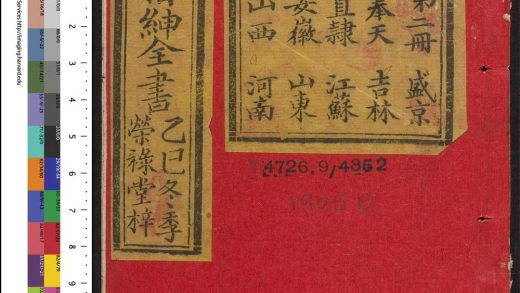 第二冊 盛京
奉天 吉林
直隸 江蘇
安徽 山東
山西 河南
紳全書
乙巳冬季
榮祿堂梓
4726.9/4352
Services http://imaging.harvard.edu
2
3
4
5
6
7
8
9